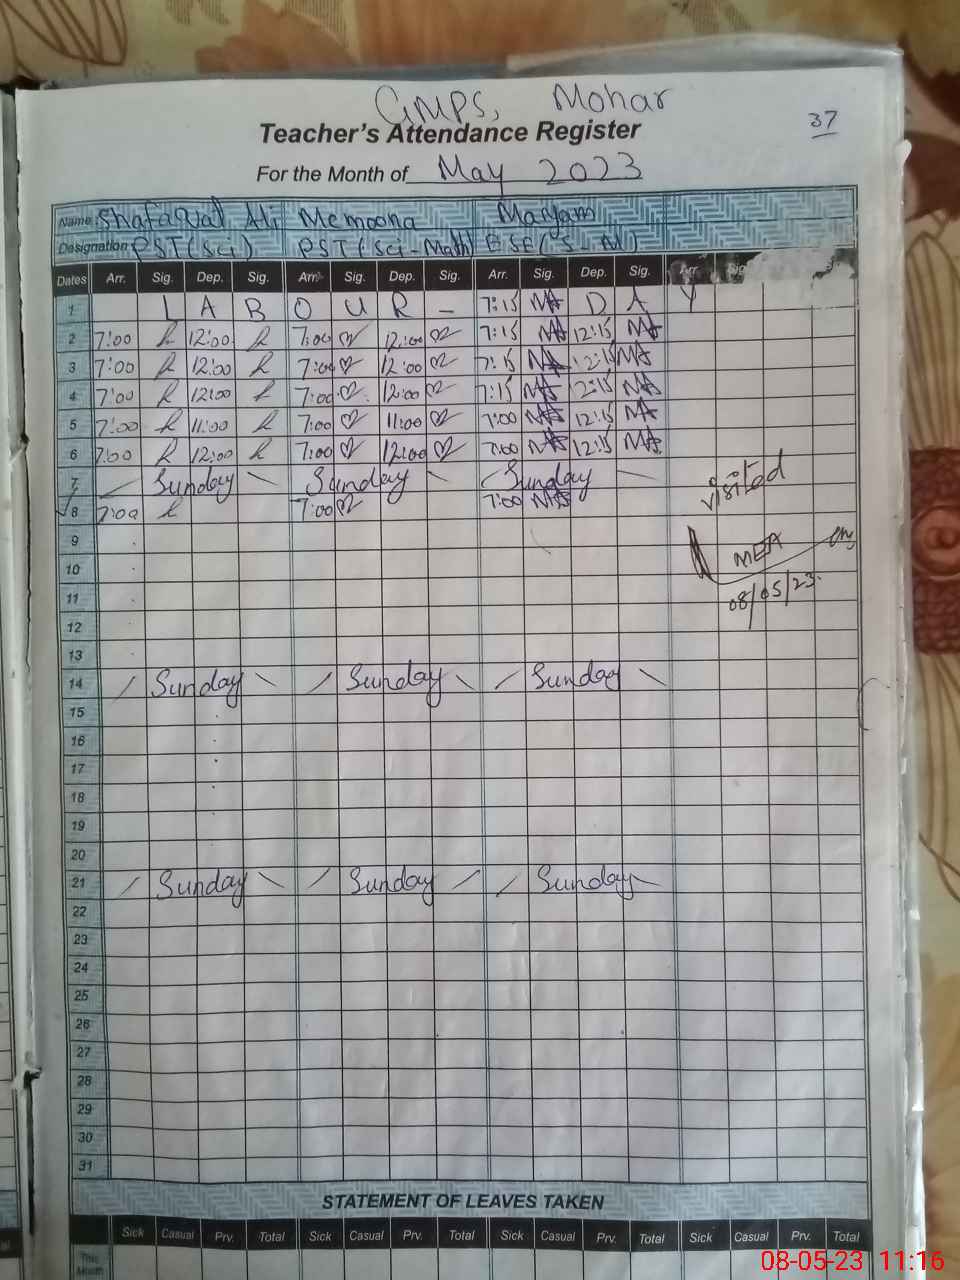 GMPS, Mohar
37
Teacher's Attendance Register
For the Month of May 2023
Name: Shafaqat Ali Memoona Maryam
Designation PST(Sci) PST(Sci-Math) ESE(S-M)
Dates Arr. Sig. Dep. Sig. Arr. Sig. Dep. Sig. Arr. Sig. Dep. Sig. Arr Sig
1 L A B O U R - 7:15 D A Y
2 7:00 12:00 7:00 12:00 7:15 12:15
3 7:00 12:00 7:00 12:00 7:15 12:15
4 7:00 12:00 7:00 12:00 7:15 12:15
5 7:00 11:00 7:00 11:00 7:00 12:15
6 7:00 12:00 7:00 12:00 7:00 12:15
7 Sunday Sunday Sunday
8 7:00 7:00 7:00
visited
9
MEA
10
08/05/23
11
12
13
14 Sunday Sunday Sunday
15
16
17
18
19
20
21 Sunday Sunday Sunday
22
23
24
25
26
27
28
29
30
31
STATEMENT OF LEAVES TAKEN
Sick Casual Prv. Total Sick Casual Prv. Total Sick Casual Prv. Total Sick Casual Prv. Total
This Month
08-05-23 11:16